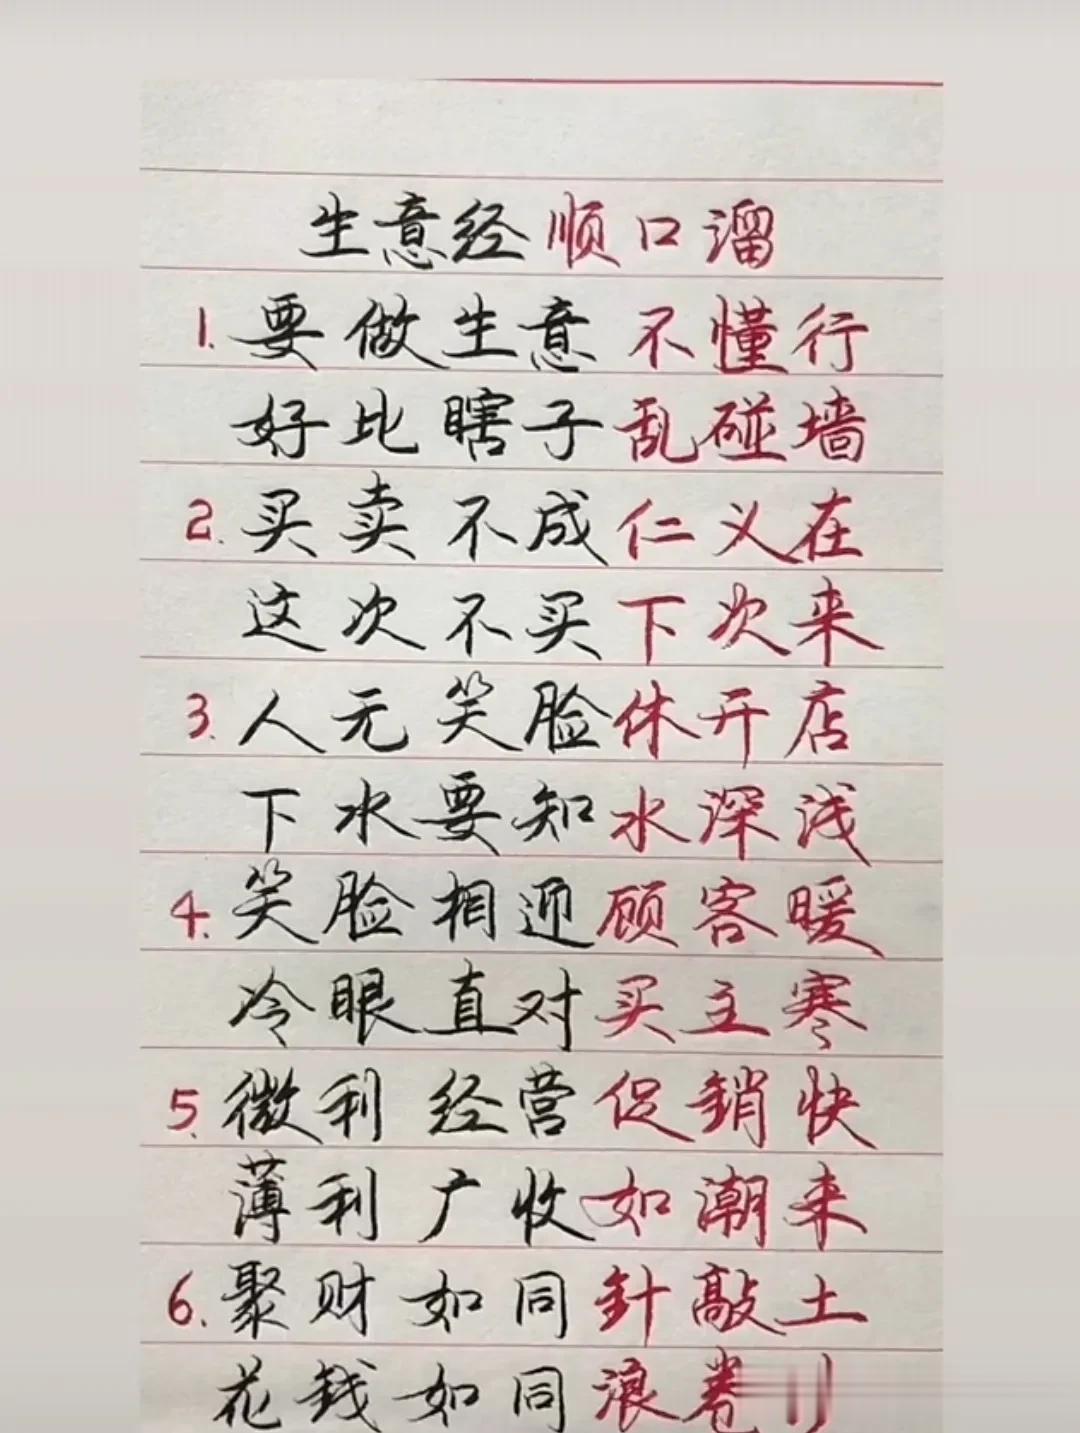 生意经顺口溜
1.要做生意不懂行
好比瞎子乱碰墙
2.买卖不成仁义在
这次不买下次来
3.人无笑脸休开店
下水要知水深浅
4.笑脸相迎顾客暖
冷眼直对买主寒
5.微利经营促銷快
薄利广收如潮来
6.聚财如同針敲土
花錢如同浪卷